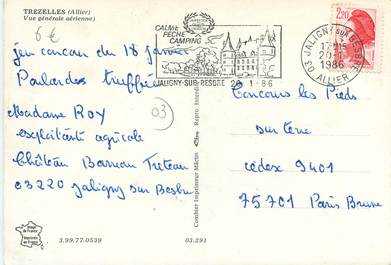 TREZELLES (Allier)
Vue générale aérienne)
6€
jeu concours du 18 janvier
Poulardes truffées
Madame ROY
exploitante agricole
Château Treteau
03220 Jaligny sur Besbre
03
CALME
PECHE
CAMPING
JALIGNY-SUR-BESBRE 20-1-86
03 JALIGNY SUR BESBRE
17H15
20-1
1986
ALLIER
2,20
Concours les Pieds
sur terre
cedex 9401
75701 Paris Brune
Combier Imprimeur Mâcon
Image de France
Imprimée en France
3.99.77.0539
03.291